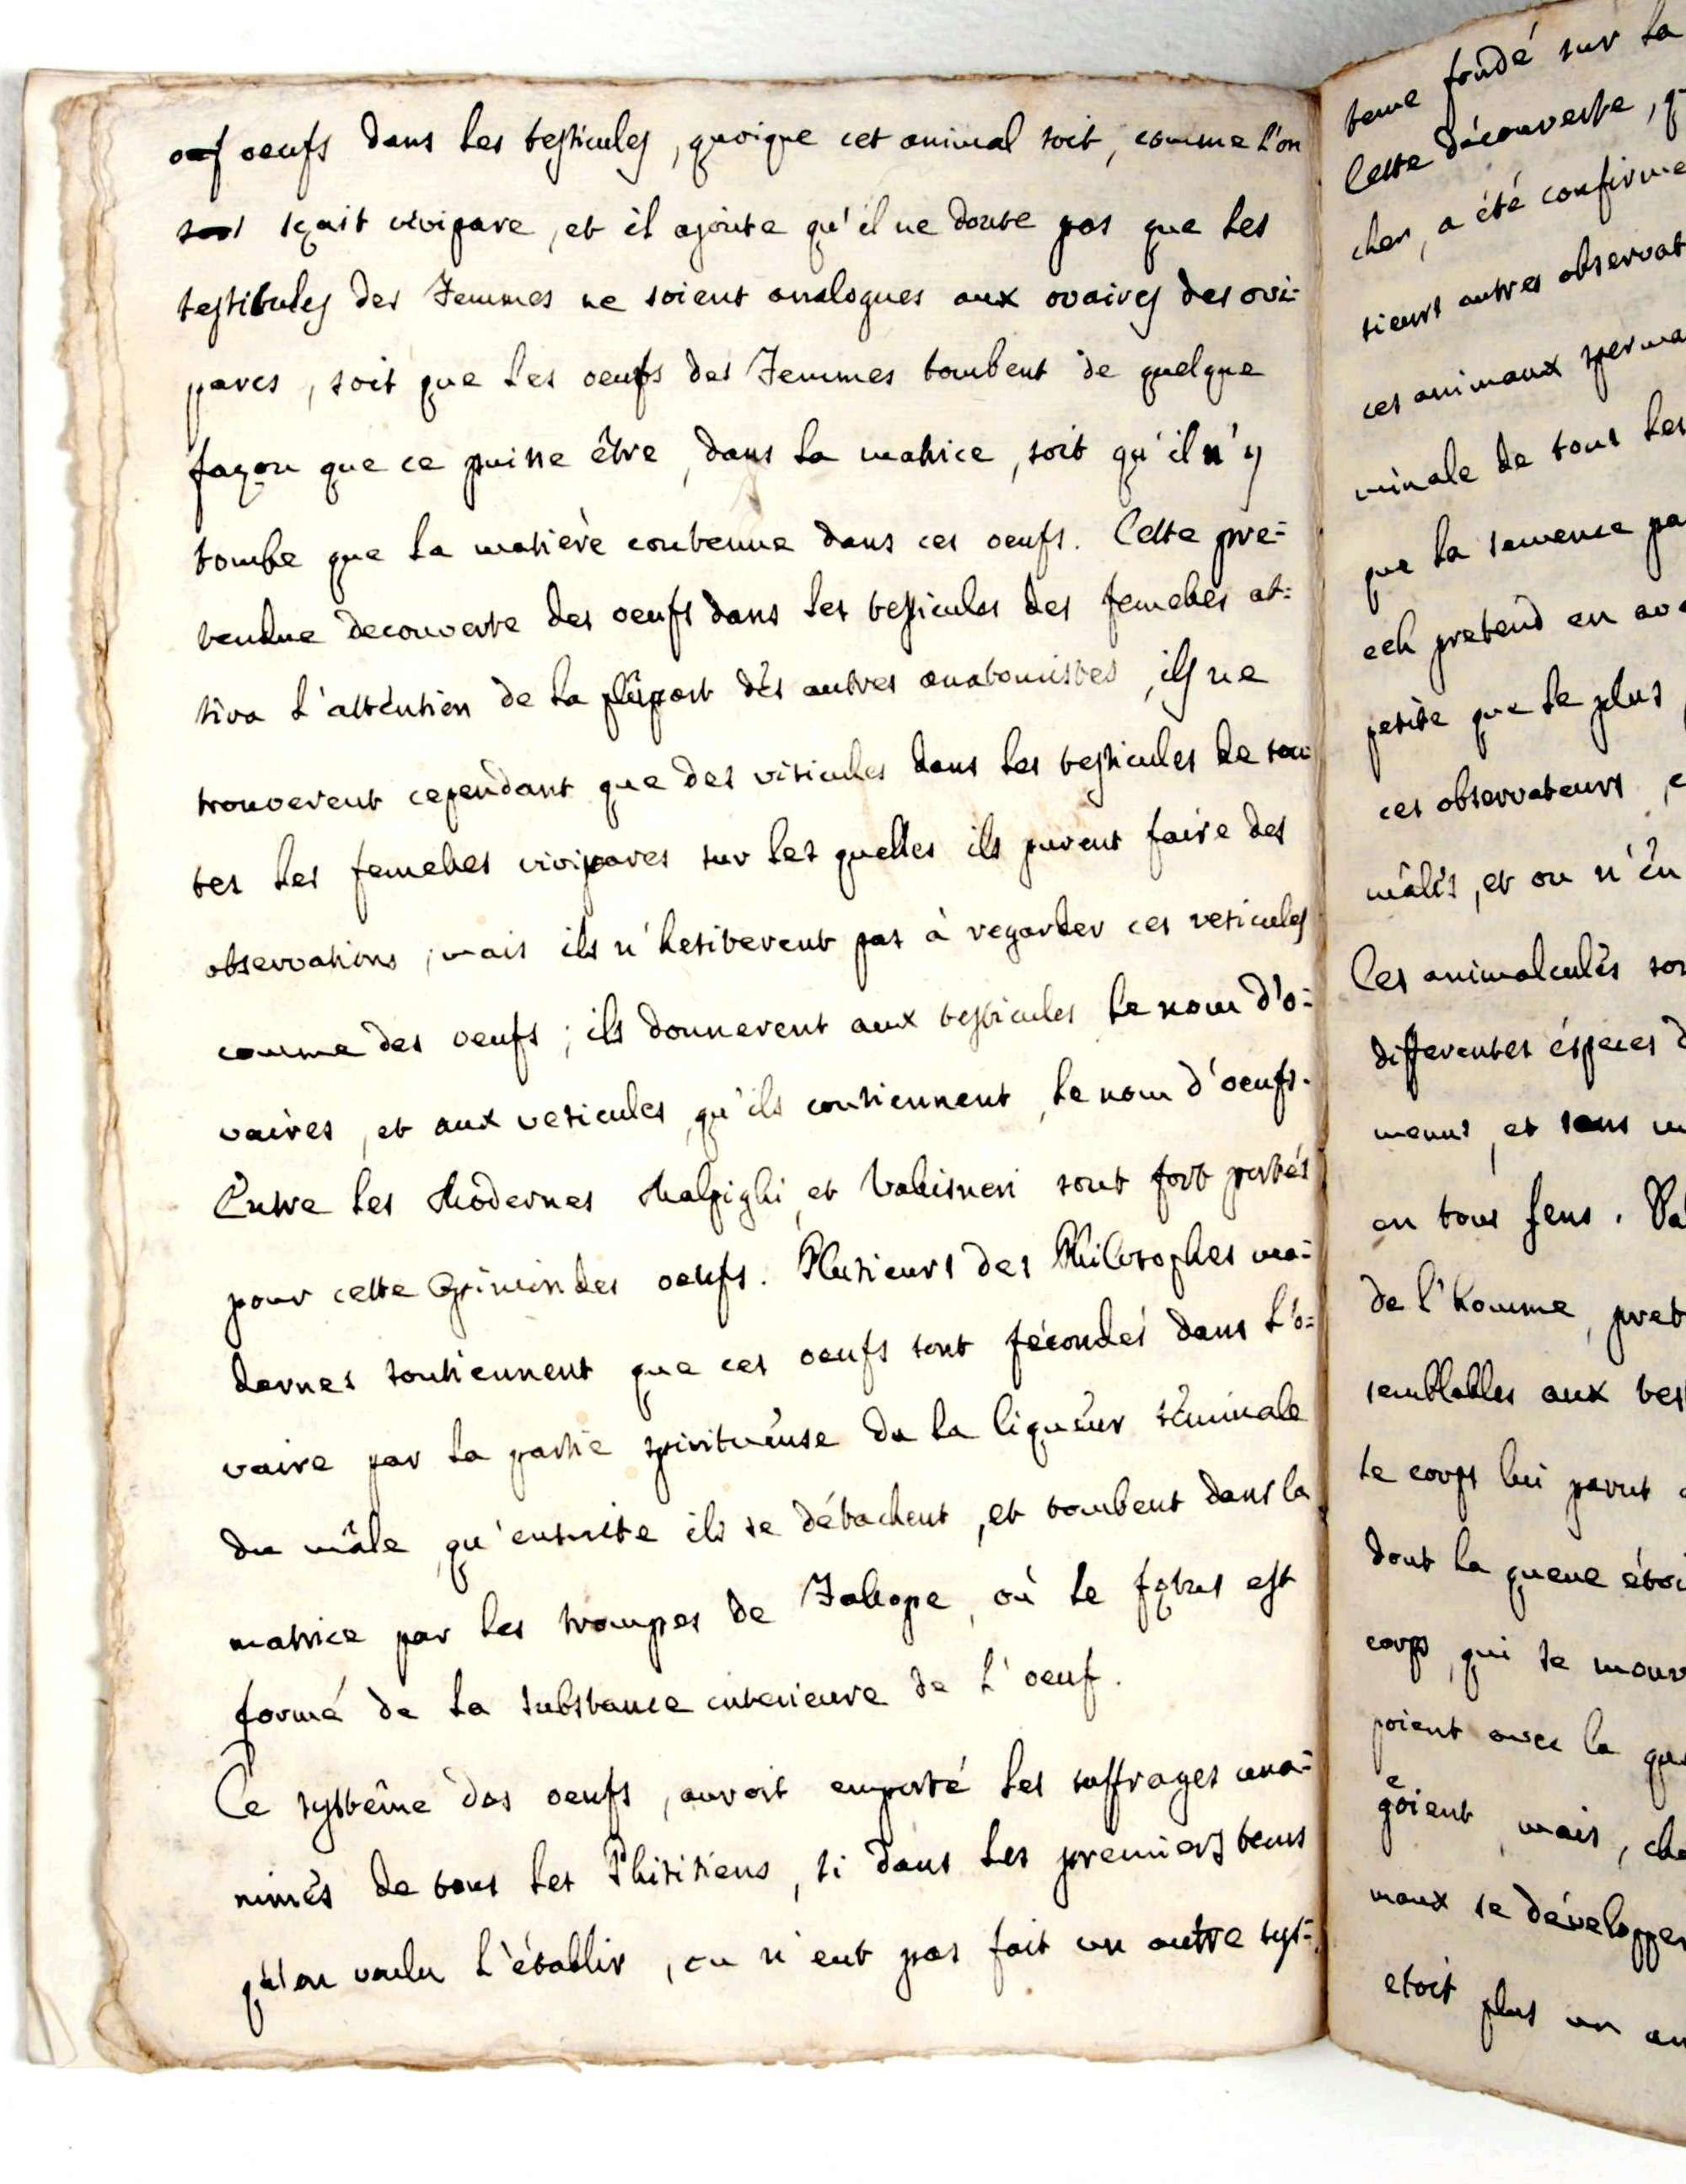 oeufs dans les testicules, quoique cet animal soit, comme l'on
sçait vivipare, et il ajoute qu'il ne doute pas que les
testibules des Femmes ne soient analogues aux ovaires des ovi=
pares, soit que les oeufs des Femmes tombent de quelque
façon que ce puisse être, dans la matrice, soit qu'il n'y
tombe que la matière contenue dans ces oeufs. Cette pre=
tendue decouverte des oeufs dans les testicules des femelles at=
tira l'attention de la plûpart des autres anatomistes, ils ne
trouverent cependant que des visicules dans les testicules de tou
tes les femelles vivipares sur les quelles ils purent faire des
observations, mais ils n'hesiterent pas à regarder ces vesicules
comme des oeufs; ils donnerent aux testicules le nom d'o=
vaires, et aux vesicules, qu'ils contiennent, le nom d'oeufs.
Entre les Modernes Malpighi, et Valisneri sont fort portés
pour cette des oeufs. Plusieurs des Philosophes mo=
dernes soutiennent que ces oeufs sont fécondés dans l'o=
vaire par la partie spiritueuse de la liqueur séminale
du mâle, qu'ensuite ils se détachent, et tombent dans la
matrice par les trompes de Falope, où le fœtus est
formé de la substance interieure de l'oeuf.
Ce systême des oeufs, auroit emporté les suffrages una=
nimes de tous les Phisitiens, si dans les premiers tems
qu'on voulu l'établir, on n'eut pas fait un autre sys=
teme fondé sur la
Cette découverte, q
cher, a été confirme
sieurs autres observat
ces animaux sperma
minale de tous les
que la semence pa
eek pretend en av
petite que le plus
ces observateurs, e
mâles, et on n'en
Ces animalcules son
differentes éspeces d
menus, et sans m
en tous sens. Va
de l'homme, pret
semblables aux tes
le corps lui parut
dont la queue étoi
corps, qui se mouv
poient avec la qu
geoient, mais, che
maux se développer
etoit plus un an